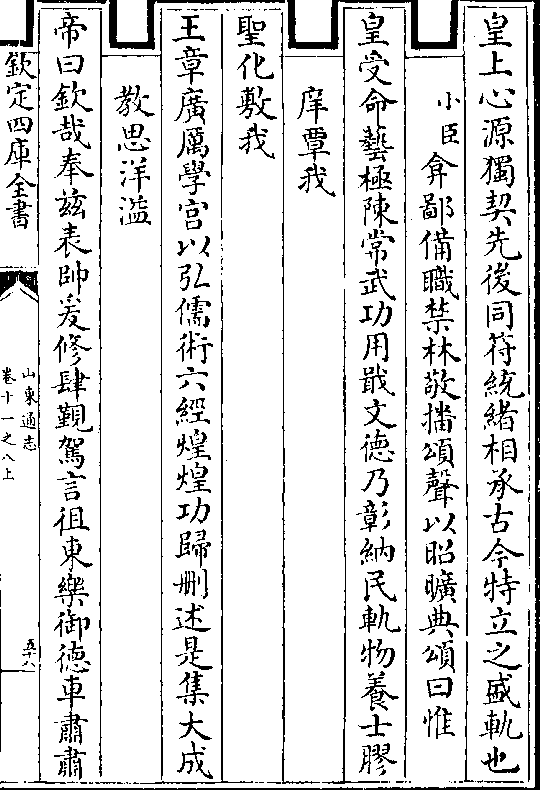 皇上心源獨契先後同符統緒相承古今特立之盛軌也
小臣弇鄙備職禁林敬播頌聲以昭曠典頌曰惟
皇受命藝極陳常武功用戢文德乃彰納民軌物養士膠
庠覃我
聖化敷我
王章廣厲學宫以弘儒術六經煌煌功歸刪述是集大成
教思洋溢
帝曰欽哉奉兹表帥爰修肆覲駕言徂東樂御德車肅肅
欽定四庫全書
山東通志
卷十一之八上
五十八